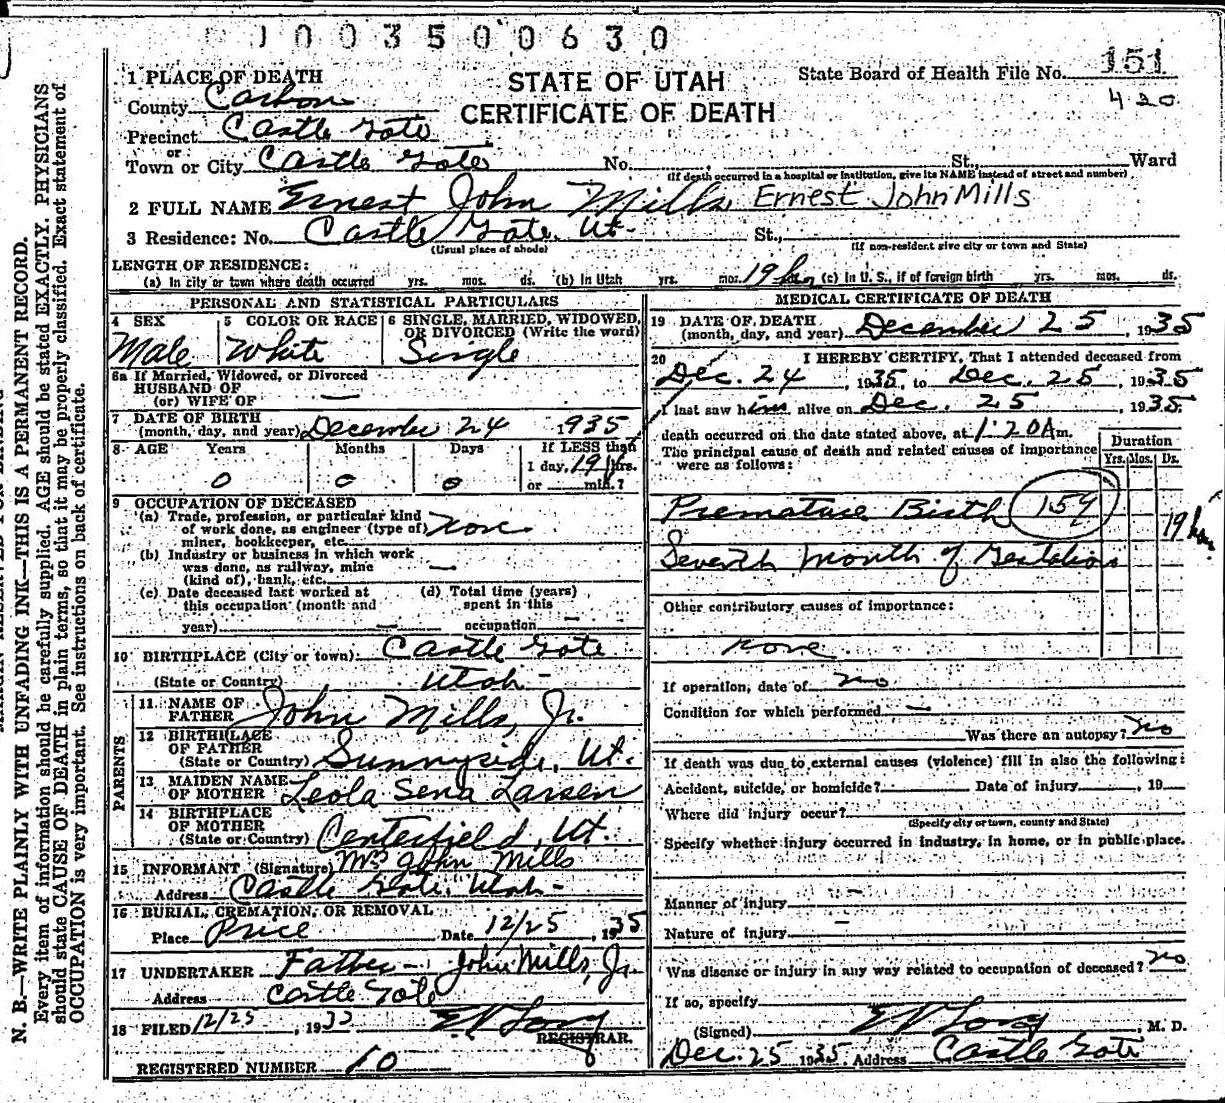 1003500630
STATE OF UTAH
CERTIFICATE OF DEATH
State Board of Health File No. 151
420
1 PLACE OF DEATH
County Carbon
Precinct Castle Gate
or
Town or City Castle Gate No. St., Ward
(If death occurred in a hospital or institution, give its NAME instead of street and number)
2 FULL NAME Ernest John Mills Ernest John Mills
3 Residence: No. Castle Gate, Ut. St.,
(Usual place of abode) (If non-resident give city or town and State)
LENGTH OF RESIDENCE:
(a) In city or town where death occurred yrs. mos. ds. (b) In Utah yrs. mos. 19 hrs (c) In U. S., if of foreign birth yrs. mos. ds.
PERSONAL AND STATISTICAL PARTICULARS
4 SEX
Male
5 COLOR OR RACE
White
6 SINGLE, MARRIED, WIDOWED,
OR DIVORCED (Write the word)
Single
6a If Married, Widowed, or Divorced
HUSBAND OF
(or) WIFE OF —
7 DATE OF BIRTH
(month, day, and year) December 24 1935
8 AGE Years Months Days If LESS than
1 day, 19 hrs.
0 0 0 or min.?
9 OCCUPATION OF DECEASED
(a) Trade, profession, or particular kind
of work done, as engineer (type of) none
miner, bookkeeper, etc.
(b) Industry or business in which work
was done, as railway, mine —
(kind of), bank, etc.
(c) Date deceased last worked at (d) Total time (years)
this occupation (month and spent in this
year) — occupation —
10 BIRTHPLACE (City or town) Castle Gate
(State or Country) Utah -
PARENTS
11 NAME OF
FATHER John Mills, Jr.
12 BIRTHPLACE
OF FATHER
(State or Country) Sunnyside, Ut.
13 MAIDEN NAME
OF MOTHER Leola Sena Larsen
14 BIRTHPLACE
OF MOTHER
(State or Country) Centerfield, Ut.
15 INFORMANT (Signature) Mrs John Mills
Address Castle Gate, Utah -
16 BURIAL, CREMATION, OR REMOVAL
Place Price Date 12/25, 1935
17 UNDERTAKER Father - John Mills, Jr.
Address Castle Gate
18 FILED 12/25, 1935 E V Long
REGISTRAR.
REGISTERED NUMBER 10
MEDICAL CERTIFICATE OF DEATH
19 DATE OF DEATH
(month, day, and year) December 25, 1935
20 I HEREBY CERTIFY, That I attended deceased from
Dec. 24, 1935, to Dec. 25, 1935
I last saw him alive on Dec. 25, 1935
death occurred on the date stated above, at 1:20 A m.
The principal cause of death and related causes of importance
were as follows:
Duration
Yrs. Mos. Ds.
Premature Birth 159
19 hrs
Seventh Month of Gestation
Other contributory causes of importance:
none.
If operation, date of no
Condition for which performed —
Was there an autopsy? no
If death was due to external causes (violence) fill in also the following:
Accident, suicide, or homicide? Date of injury , 19
Where did injury occur?
(Specify city or town, county and State)
Specify whether injury occurred in industry, in home, or in public place.
–
Manner of injury
–
Nature of injury
Was disease or injury in any way related to occupation of deceased? no
If so, specify
(Signed) E V Long, M. D.
Dec. 25 1935. Address Castle Gate
N. B.—WRITE PLAINLY WITH UNFADING INK—THIS IS A PERMANENT RECORD.
Every item of information should be carefully supplied. AGE should be stated EXACTLY. PHYSICIANS
should state CAUSE OF DEATH in plain terms, so that it may be properly classified. Exact statement of
OCCUPATION is very important. See instructions on back of certificate.